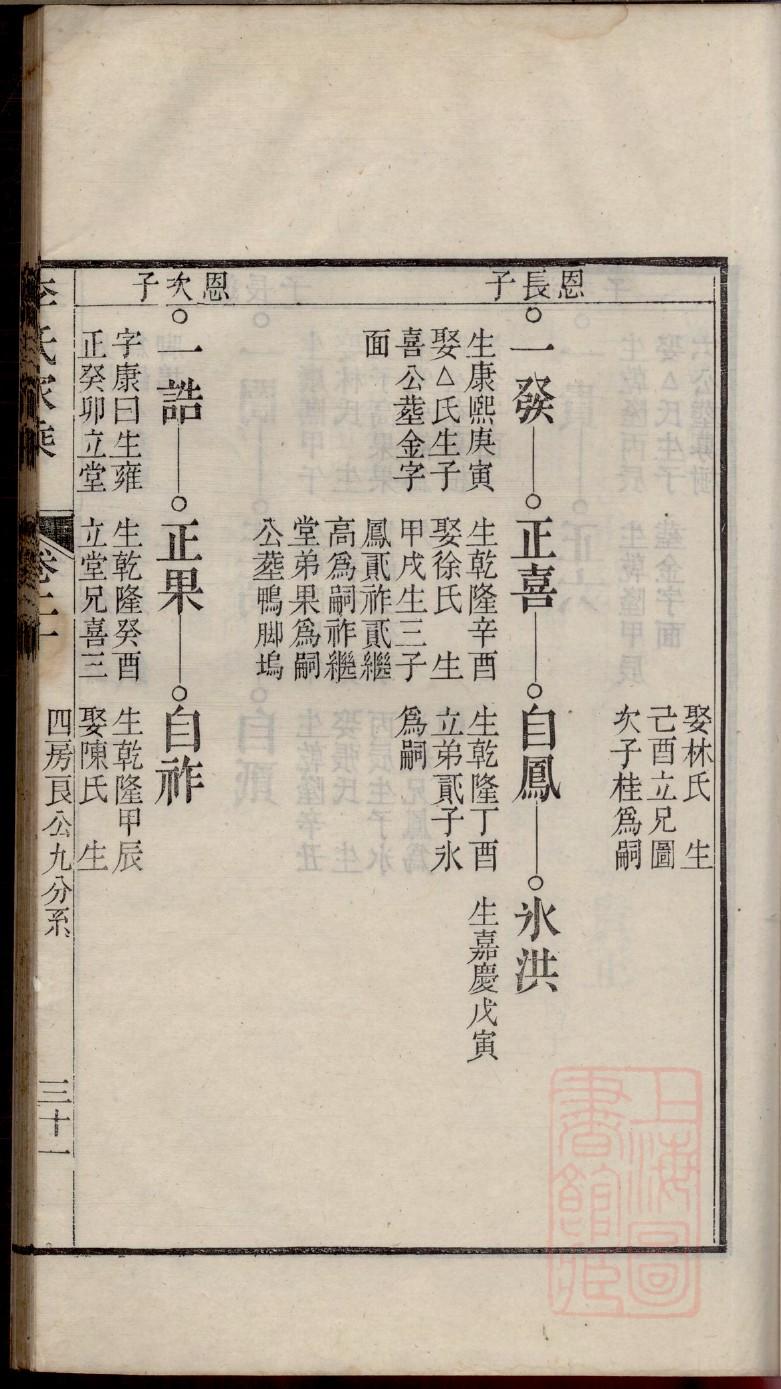 娶林氏　生
己酉立兄圖
次子桂為嗣
恩長子
一發
生康熙庚寅
娶△氏生子
喜公塟金字
面
正喜
生乾隆辛酉
娶徐氏　生
甲戌生三子
鳳貳祚貳繼
高為嗣祚繼
堂弟果為嗣
公塟鴨脚塢
自鳳
生乾隆丁酉
立弟貳子氷
為嗣
氷洪
生嘉慶戊寅
恩次子
一誥
字康曰生雍
正癸卯立堂
正果
生乾隆癸酉
立堂兄喜三
自祚
生乾隆甲辰
娶陳氏　生
李氏家乘
卷二十
四房良公九分系
三十一
上海圖書館藏